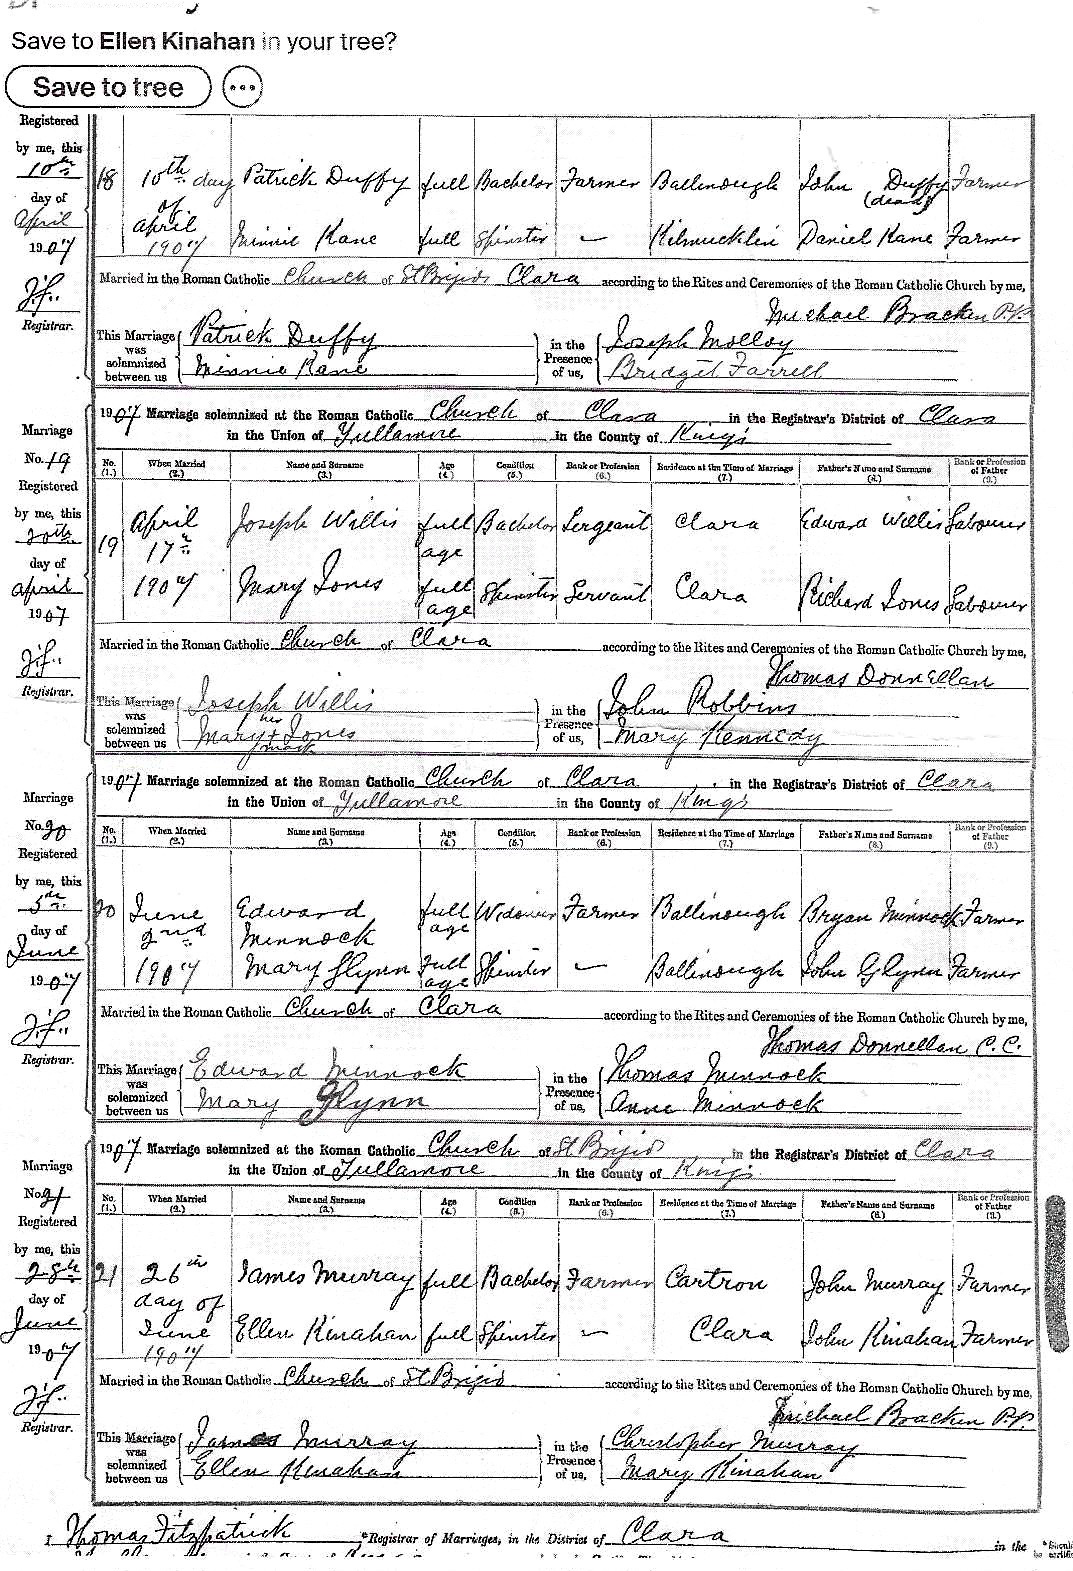 Save to Ellen Kinahan in your tree?
Save to tree
Registered
by me, this
10th
day of
April
1907
J.F.
Registrar.
18 10th day of April 1907 Patrick Duffy full Bachelor Farmer Ballinough John Duffy (dead) Farmer
Minnie Kane full Spinster — Kilmucklin Daniel Kane Farmer
Married in the Roman Catholic Church of St Brigids Clara according to the Rites and Ceremonies of the Roman Catholic Church by me,
Michael Bracken P.P.
This Marriage was solemnized between us Patrick Duffy in the Presence of us, Joseph Molloy
Minnie Kane Bridget Farrell
1907 Marriage solemnized at the Roman Catholic Church of Clara in the Registrar's District of Clara
in the Union of Tullamore in the County of King's
Marriage
No. 19
Registered
by me, this
20th
day of
April
1907
J.F.
Registrar.
No. (1.) When Married (2.) Name and Surname (3.) Age (4.) Condition (5.) Rank or Profession (6.) Residence at the Time of Marriage (7.) Father's Name and Surname (8.) Rank or Profession of Father (9.)
19 April 17th 1907 Joseph Willis full age Bachelor Sergeant Clara Edward Willis Labourer
Mary Jones full age Spinster Servant Clara Richard Jones Labourer
Married in the Roman Catholic Church of Clara according to the Rites and Ceremonies of the Roman Catholic Church by me,
Thomas Donnellan
This Marriage was solemnized between us Joseph Willis in the Presence of us, John Robbins
Mary her + mark Jones Mary Kennedy
1907 Marriage solemnized at the Roman Catholic Church of Clara in the Registrar's District of Clara
in the Union of Tullamore in the County of King's
Marriage
No. 20
Registered
by me, this
5th
day of
June
1907
J.F.
Registrar.
No. (1.) When Married (2.) Name and Surname (3.) Age (4.) Condition (5.) Rank or Profession (6.) Residence at the Time of Marriage (7.) Father's Name and Surname (8.) Rank or Profession of Father (9.)
20 June 2nd 1907 Edward Minnock full age Widower Farmer Ballinough Bryan Minnock Farmer
Mary Glynn Full age Spinster — Ballinough John Glynn Farmer
Married in the Roman Catholic Church of Clara according to the Rites and Ceremonies of the Roman Catholic Church by me,
Thomas Donnellan C.C.
This Marriage was solemnized between us Edward Minnock in the Presence of us, Thomas Minnock
Mary Glynn Anne Minnock
1907 Marriage solemnized at the Roman Catholic Church of St Brigid in the Registrar's District of Clara
in the Union of Tullamore in the County of King's
Marriage
No. 21
Registered
by me, this
28th
day of
June
1907
J.F.
Registrar.
No. (1.) When Married (2.) Name and Surname (3.) Age (4.) Condition (5.) Rank or Profession (6.) Residence at the Time of Marriage (7.) Father's Name and Surname (8.) Rank or Profession of Father (9.)
21 26th day of June 1907 James Murray full Bachelor Farmer Cartron John Murray Farmer
Ellen Kinahan full Spinster — Clara John Kinahan Farmer
Married in the Roman Catholic Church of St Brigid according to the Rites and Ceremonies of the Roman Catholic Church by me,
Michael Bracken P.P.
This Marriage was solemnized between us James Murray in the Presence of us, Christopher Murray
Ellen Kinahan Mary Kinahan
Thomas Fitzpatrick *Registrar of Marriages, in the District of Clara in the